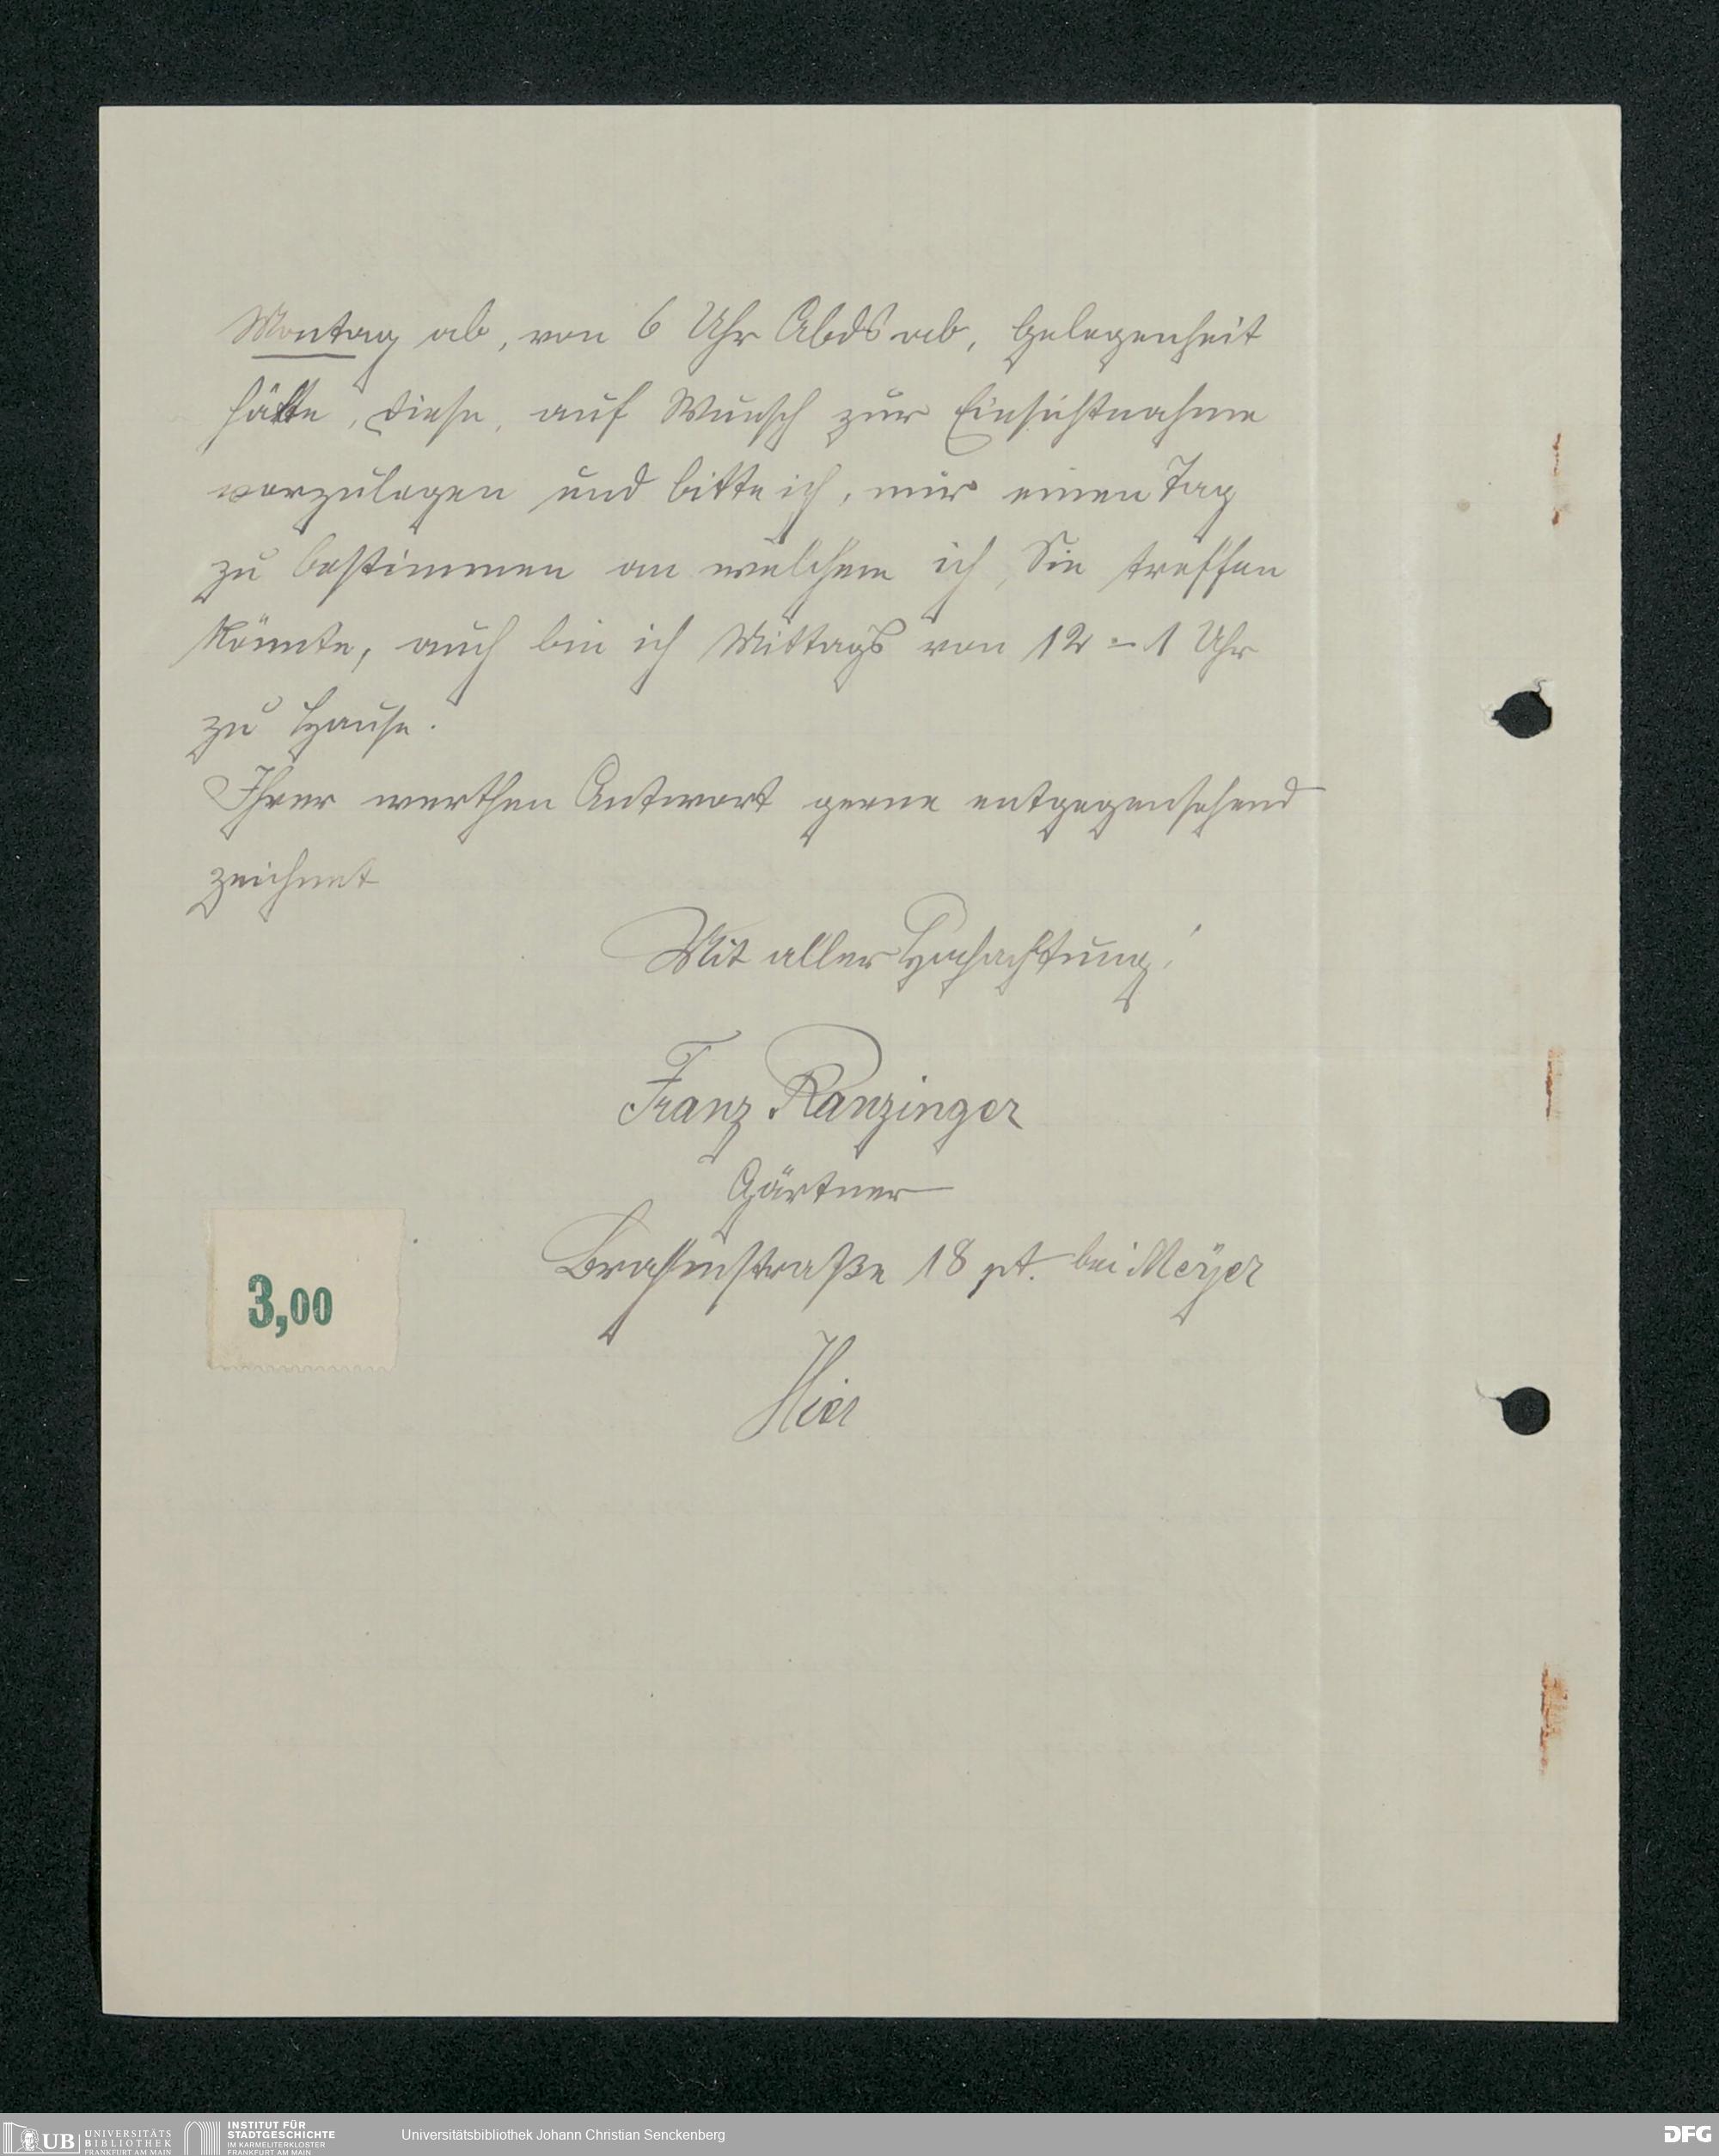 Montag ab, von 6 Uhr Abds ab, Gelegenheit
hätte, diese, auf Wunsch zur Einsichtnahme
vorzulegen und bitte ich, mir einen Tag
zu bestimmen an welchem ich, Sie treffen
könnte, auch bin ich Mittags von 12 - 1 Uhr
zu Hause.
Ihrer werthen Antwort gerne entgegensehend
zeichnet
Mit aller Hochachtung!
Franz Ranzinger
Gärtner
18 pt. bei Meÿer
Hier
3,00
UB UNIVERSITÄTS BIBLIOTHEK FRANKFURT AM MAIN
INSTITUT FÜR STADTGESCHICHTE IM KARMELITERKLOSTER FRANKFURT AM MAIN
Universitätsbibliothek Johann Christian Senckenberg
DFG